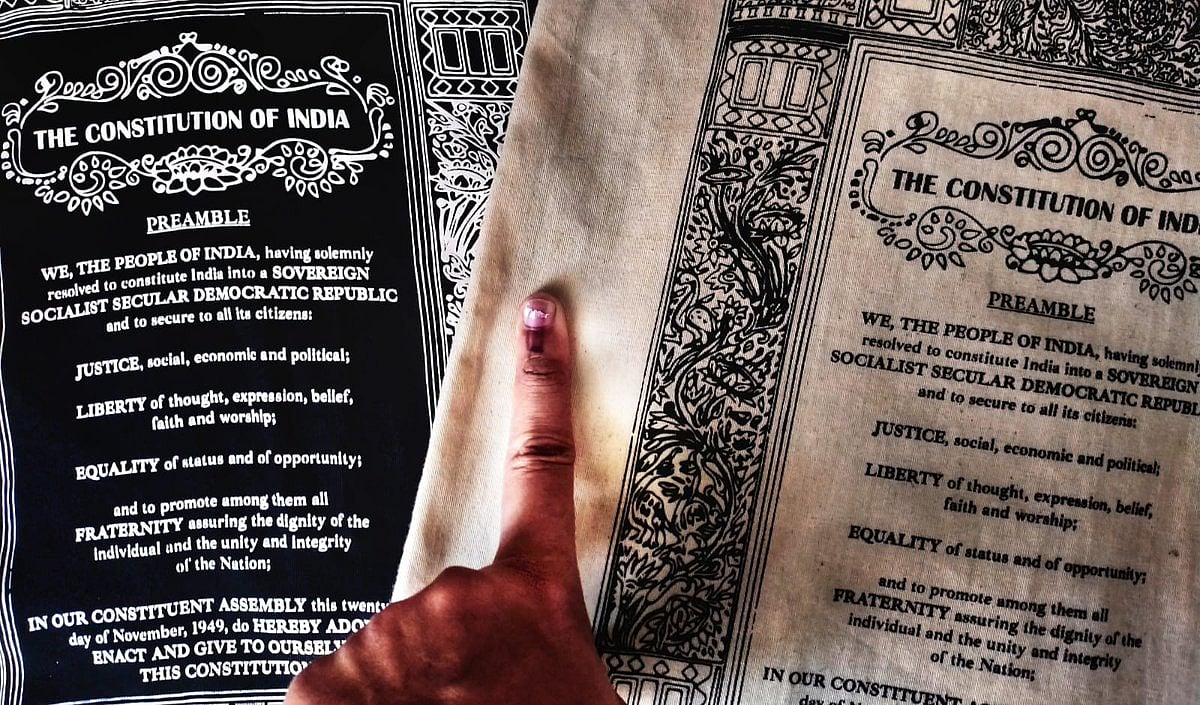 THE CONSTITUTION OF INDIA
PREAMBLE
WE, THE PEOPLE OF INDIA, having solemnly
resolved to constitute India into a SOVEREIGN
SOCIALIST SECULAR DEMOCRATIC REPUBLIC
and to secure to all its citizens:
JUSTICE, social, economic and political;
LIBERTY of thought, expression, belief,
faith and worship;
EQUALITY of status and of opportunity;
and to promote among them all
FRATERNITY assuring the dignity of the
individual and the unity and integrity
of the Nation;
IN OUR CONSTITUENT ASSEMBLY this twenty
day of November, 1949, do HEREBY ADO
ENACT AND GIVE TO OURSEL
THIS CONSTITUTION
THE CONSTITUTION OF IND
PREAMBLE
WE, THE PEOPLE OF INDIA, having solemn
resolved to constitute India into a SOVEREIGN
SOCIALIST SECULAR DEMOCRATIC REPUB
and to secure to all its citizens:
JUSTICE, social, economic and political;
LIBERTY of thought, expression, belief,
faith and worship;
EQUALITY of status and of opportunity;
and to promote among them all
FRATERNITY assuring the dignity of the
individual and the unity and integrity
of the Nation;
IN OUR CONSTITUENT